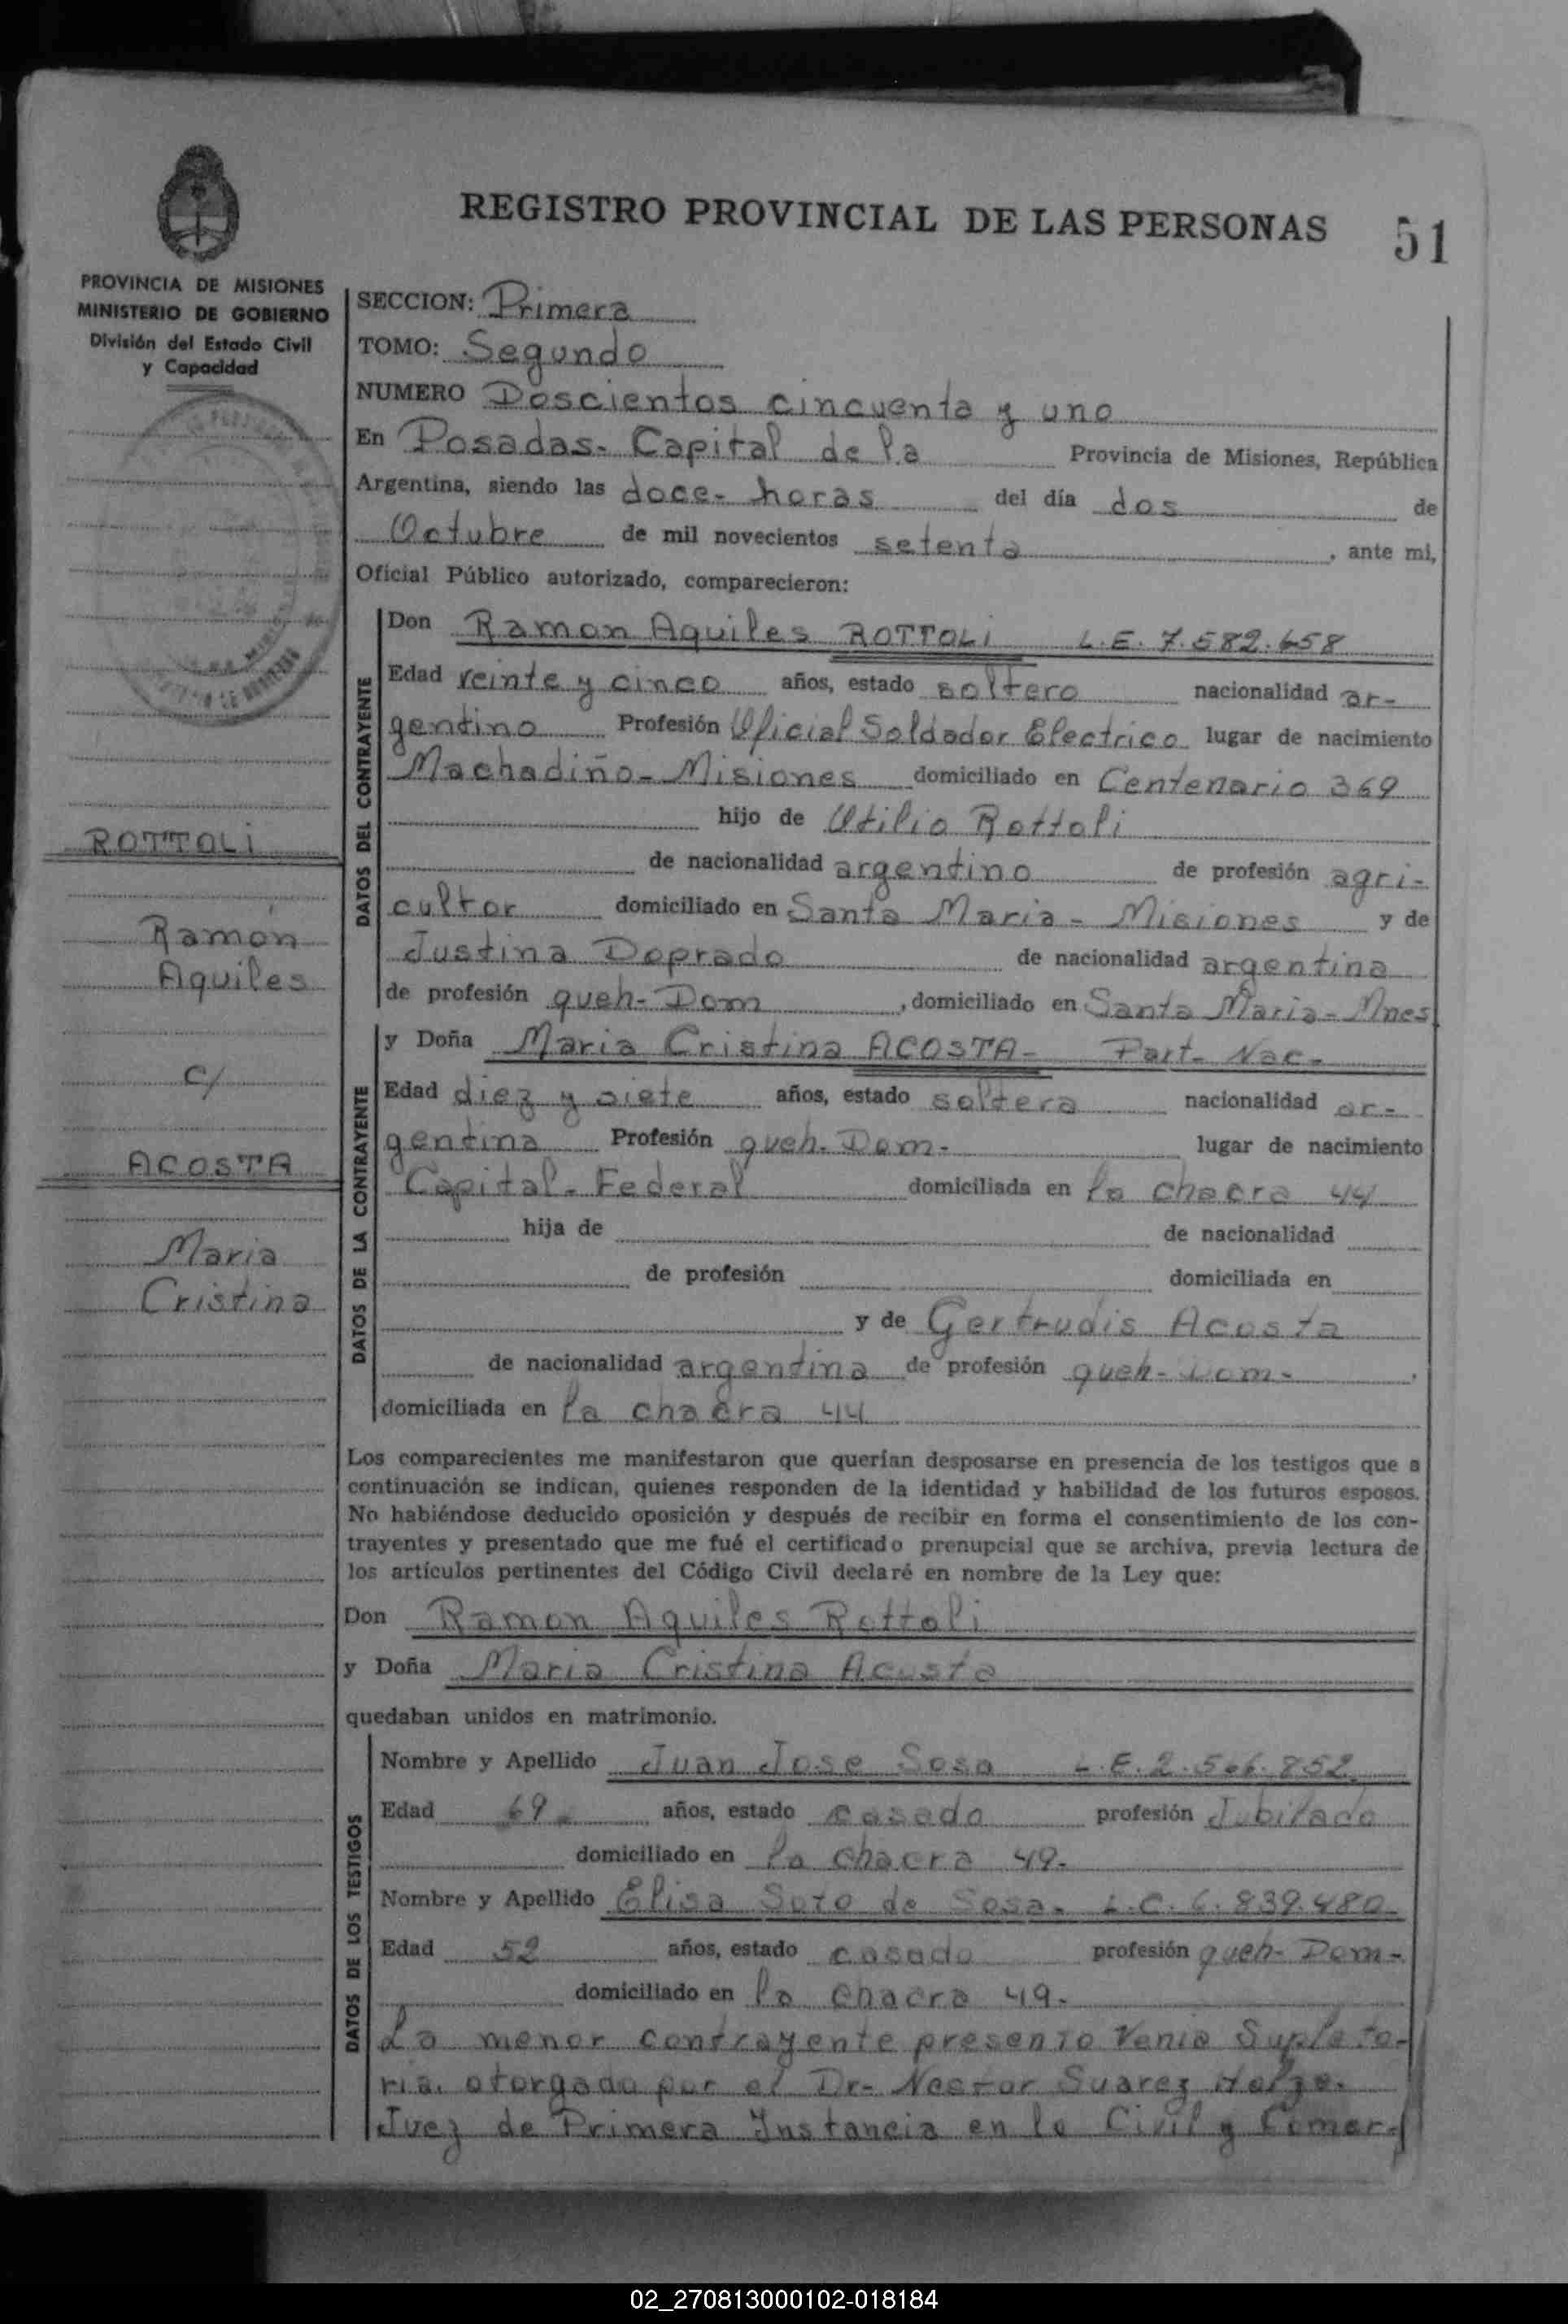 REGISTRO PROVINCIAL DE LAS PERSONAS 51
PROVINCIA DE MISIONES
MINISTERIO DE GOBIERNO
División del Estado Civil
y Capacidad
ROTTOLI
Ramón
Aquiles
c/
ACOSTA
Maria
Cristina
SECCION: Primera
TOMO: Segundo
NUMERO Doscientos cincuenta y uno
En Posadas- Capital de la Provincia de Misiones, República
Argentina, siendo las doce- horas del día dos de
Octubre de mil novecientos setenta, ante mi,
Oficial Público autorizado, comparecieron:
DATOS DEL CONTRAYENTE
Don Ramon Aquiles ROTTOLI L.E. 7.582.658
Edad veinte y cinco años, estado soltero nacionalidad ar-
gentino Profesión Oficial Soldador Electrico lugar de nacimiento
Machadiño- Misiones domiciliado en Centenario 369
hijo de Utilio Rottoli
de nacionalidad argentino de profesión agri-
cultor domiciliado en Santa Maria - Misiones y de
Justina Doprado de nacionalidad argentina
de profesión queh- Dom, domiciliado en Santa Maria- Mnes
DATOS DE LA CONTRAYENTE
y Doña Maria Cristina ACOSTA- Part- Nac-
Edad diez y siete años, estado soltera nacionalidad ar-
gentina Profesión queh- Dom- lugar de nacimiento
Capital- Federal domiciliada en la chacra 44
hija de de nacionalidad
de profesión domiciliada en
y de Gertrudis Acosta
de nacionalidad argentina de profesión queh- Dom-.
domiciliada en la chacra 44
Los comparecientes me manifestaron que querían desposarse en presencia de los testigos que a
continuación se indican, quienes responden de la identidad y habilidad de los futuros esposos.
No habiéndose deducido oposición y después de recibir en forma el consentimiento de los con-
trayentes y presentado que me fué el certificado prenupcial que se archiva, previa lectura de
los artículos pertinentes del Código Civil declaré en nombre de la Ley que:
Don Ramon Aquiles Rottoli
y Doña Maria Cristina Acosta
quedaban unidos en matrimonio.
DATOS DE LOS TESTIGOS
Nombre y Apellido Juan Jose Sosa L.E. 2.506.852
Edad 69- años, estado casado profesión Jubilado
domiciliado en la chacra 49-
Nombre y Apellido Elisa Soto de Sosa- L.C. 6.839.480
Edad 52 años, estado casada profesión queh- Dom-
domiciliado en la chacra 49-
La menor contrayente presento Venia Supleto-
ria. otorgada por el Dr- Nestor Suarez
Juez de Primera Instancia en lo Civil y Comer-
02_270813000102-018184